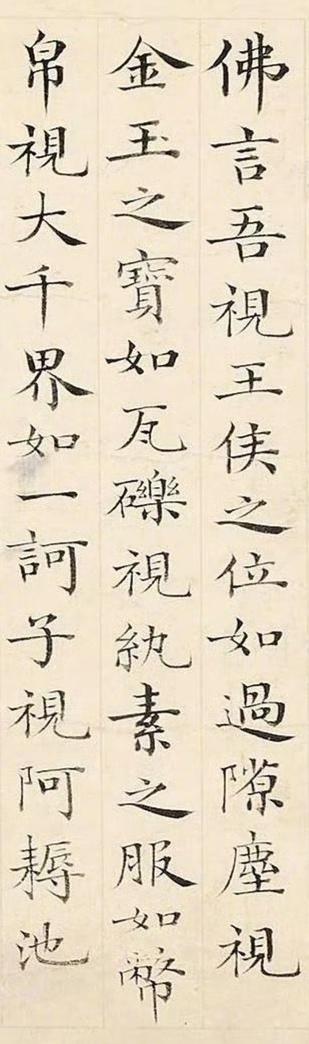 佛言吾視王侯之位如過隙塵視
金玉之寶如瓦礫視紈素之服如幣
帛視大千界如一訶子視阿耨池